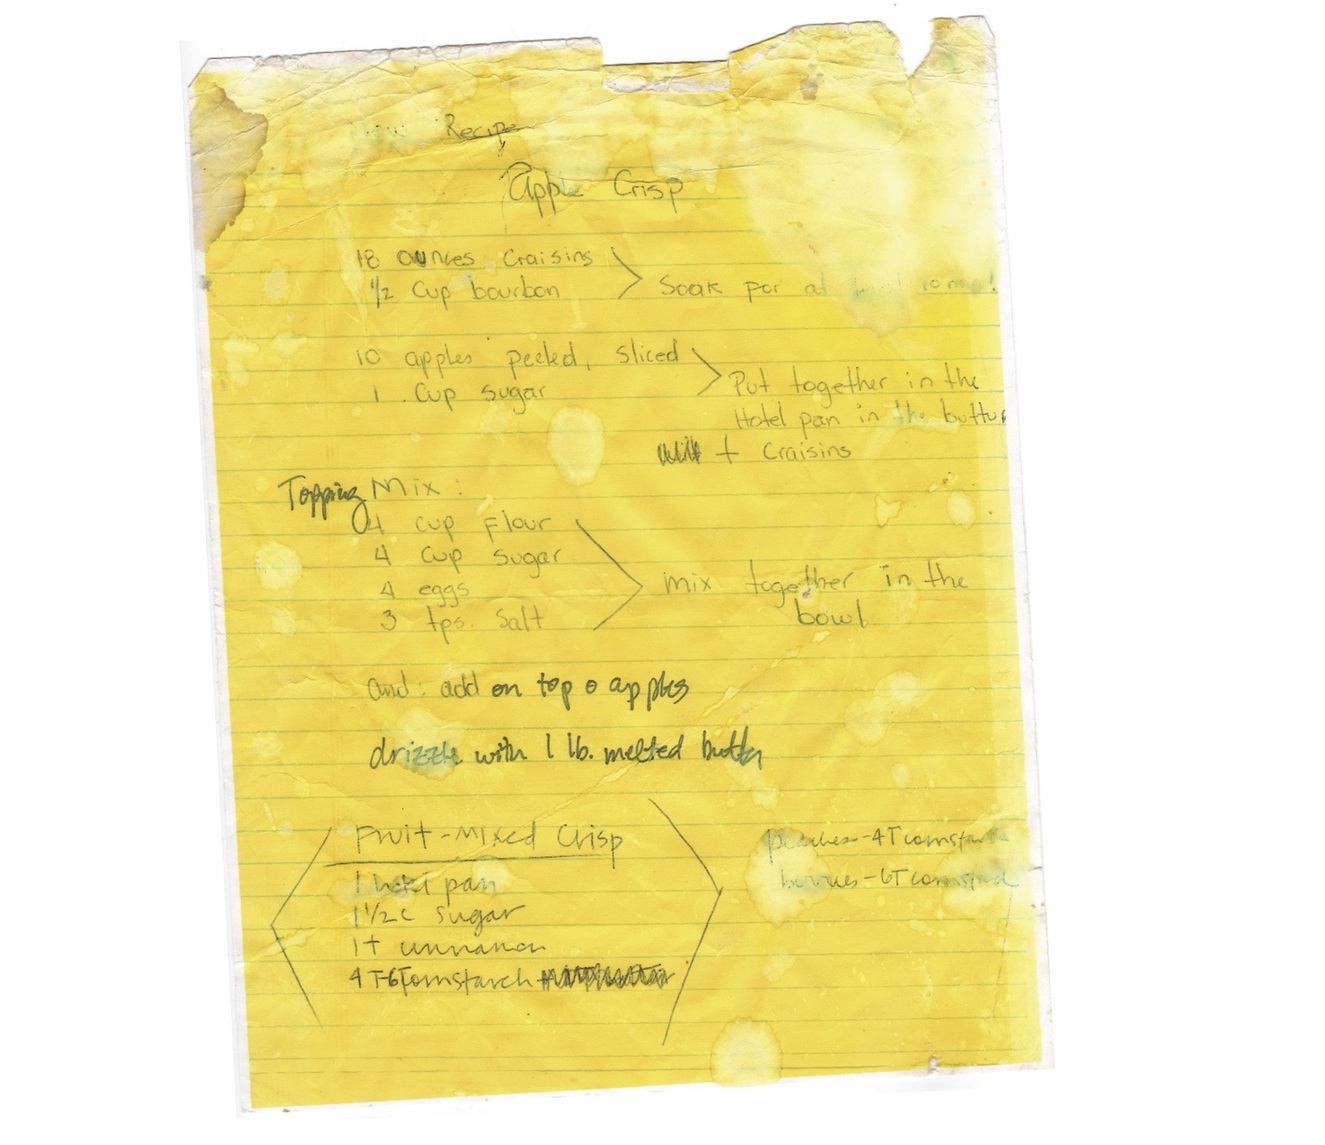 New Recipe
Apple Crisp
18 ounces Craisins
1/2 Cup bourbon
Soak for at
10 apples peeled, sliced
1 Cup sugar
Put together in the
Hotel pan in the butter
+ Craisins
Topping Mix:
4 cup flour
4 cup sugar
4 eggs
3 tps. Salt
mix together in the
bowl
and: add on top o apples
drizzle with 1 lb. melted butter
Fruit-Mixed Crisp
1 hotel pan
1 1/2 c sugar
1 t cinnamon
4T-6T cornstarch
peaches-4T cornstarch
berries-6T cornstarch